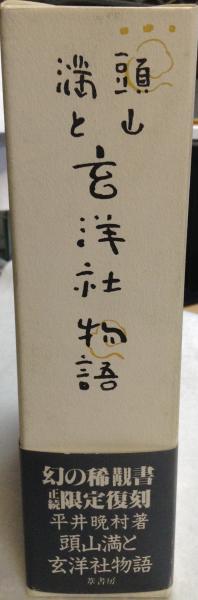 頭山
満と
玄洋社物語
幻の稀覯書
正続 限定復刻
平井晩村著
頭山満と
玄洋社物語
葦書房